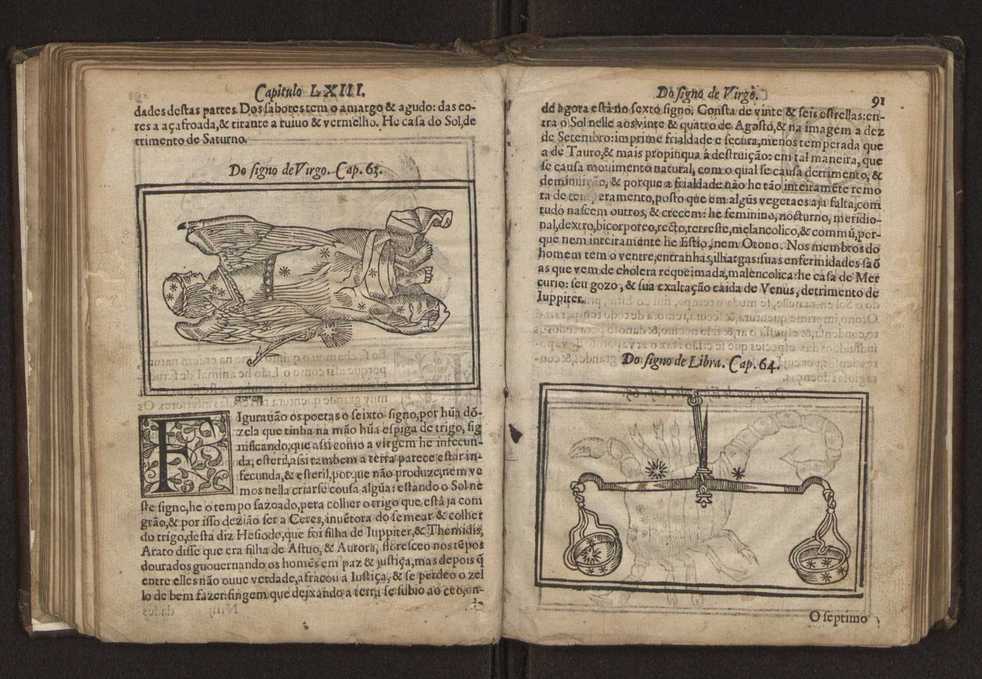 Capitulo LXIII.
dades destas partes. Dos sabores tem o amargo & agudo: das co-
res a açafroada, & tirante a ruiuo & vermelho. He casa do Sol, de
trimento de Saturno.
Do signo de Virgo. Cap. 63.
FIgurauão os poetas o seixto signo, por hũa dõ-
zela que tinha na mão hũa espiga de trigo, sig
nificando, que assi como a virgem he infecun-
da, esteril, assi tambem a terra parece estar in-
fecunda, & esteril, porque não produze, nem ve
mos nella criarse cousa algũa: estando o Sol ne
ste signo, he o tempo sazoado, pera colher o trigo que està ja com
grão, & por isso dezião ser a Ceres, inuẽtora do semear & colher
do trigo, desta diz Hesiodo, que foi filha de Iuppiter, & Themidis,
Arato disse que era filha de Astuo, & Aurora, floresceo nos tẽpos
dourados guouernando os homẽs em paz & justiça, mas depois q̃
entre elles não ouue verdade, afracou a Iustiça, & se perdeo o zel
lo de bem fazer: fingem que deixando a terra se subio ao ceo, on-
Do signo de Virgo.
91
de agora està no sexto signo. Consta de vinte & seis estrellas: en-
tra o Sol nelle aos vinte & quatro de Agosto, & na imagem a dez
de Setembro: imprime frialdade e secura, menos temperada que
a de Tauro, & mais propinqua à destruição: em tal maneira, que
se causa mouimento natural, com o qual se causa detrimento, &
deminuição, & porque a frialdade não he tão inteiramẽte remo
ta de temperamento, posto que em algũs vegetaes aja falta, com
tudo nascem outros, & crecem: he feminino, nocturno, meridio-
nal, dextro, bicorporeo, recto, terrestre, melancolico, & commũ, por-
que nem inteiramente he Estio, nem Otono. Nos membros do
homem tem o ventre, entranhas, ilhargas: suas enfermidades saõ
as que vem de cholera requeimada, malencolica: he casa de Mer
curio: seu gozo, & sua exaltação caida de Venus, detrimento de
Iuppiter.
Do signo de Libra. Cap. 64.
O septimo